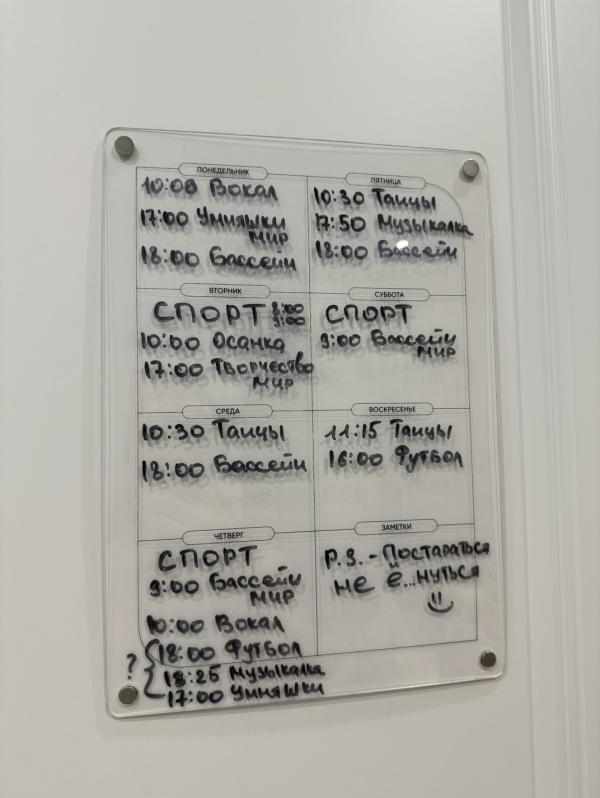 ПОНЕДЕЛЬНИК
10:00 Вокал
17:00 Умняшки
мир
18:00 Бассейн
ВТОРНИК
СПОРТ 8:00
9:00
10:00 Осанка
17:00 Творчество
мир
СРЕДА
10:30 Танцы
18:00 Бассейн
ЧЕТВЕРГ
СПОРТ
9:00 Бассейн
мир
10:00 Вокал
? { 18:00 Футбол
18:25 Музыкалка
17:00 Умняшки
ПЯТНИЦА
10:30 Танцы
17:50 Музыкалка
18:00 Бассейн
СУББОТА
СПОРТ
9:00 Бассейн
мир
ВОСКРЕСЕНЬЕ
11:15 Танцы
16:00 Футбол
ЗАМЕТКИ
P.S. - Постараться
не ё...нуться